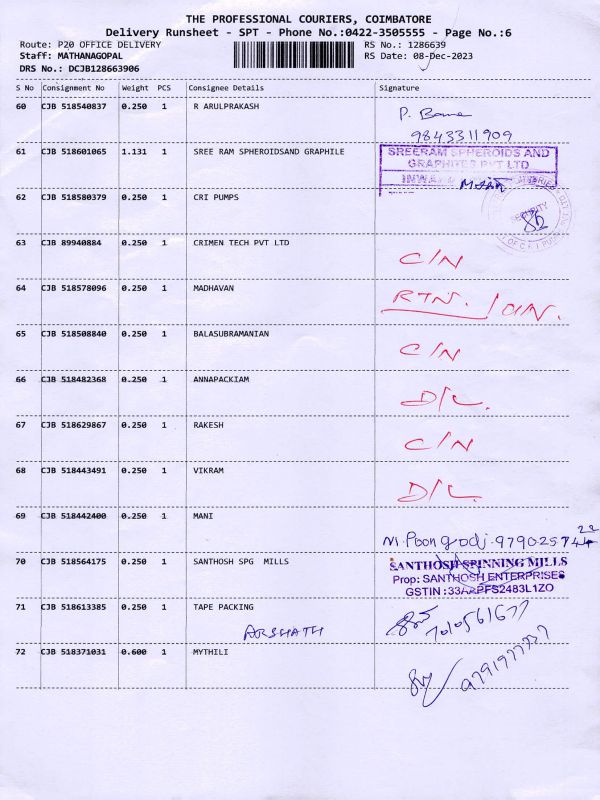 THE PROFESSIONAL COURIERS, COIMBATORE
Delivery Runsheet - SPT - Phone No.:0422-3505555 - Page No.:6
Route: P20 OFFICE DELIVERY RS No.: 1286639
Staff: MATHANAGOPAL RS Date: 08-Dec-2023
DRS No.: DCJB128663906
S No Consignment No Weight PCS Consignee Details Signature
60 CJB 518540837 0.250 1 R ARULPRAKASH P.
9843311909
61 CJB 518601065 1.131 1 SREE RAM SPHEROIDSAND GRAPHILE SREERAM SPHEROIDS AND
GRAPHITES PVT LTD
INWARD
62 CJB 518580379 0.250 1 CRI PUMPS SECURITY
63 CJB 89940884 0.250 1 CRIMEN TECH PVT LTD C/N
64 CJB 518578096 0.250 1 MADHAVAN RTN.
65 CJB 518508840 0.250 1 BALASUBRAMANIAN C/N
66 CJB 518482368 0.250 1 ANNAPACKIAM D/L.
67 CJB 518629867 0.250 1 RAKESH C/N
68 CJB 518443491 0.250 1 VIKRAM D/L.
69 CJB 518442400 0.250 1 MANI
70 CJB 518564175 0.250 1 SANTHOSH SPG MILLS SANTHOSH SPINNING MILLS
Prop: SANTHOSH ENTERPRISES
71 CJB 518613385 0.250 1 TAPE PACKING
ARSHATH
72 CJB 518371031 0.600 1 MYTHILI